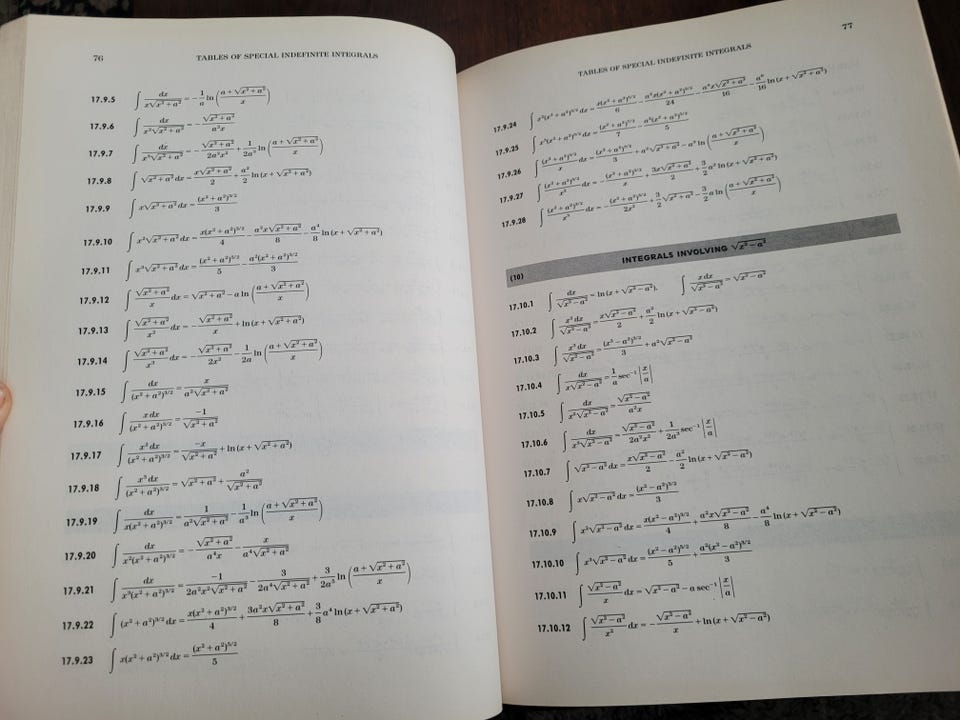 76
TABLES OF SPECIAL INDEFINITE INTEGRALS
17.9.5 ∫ dx / (x√(x² + a²)) = −(1/a) ln ((a + √(x² + a²))/x)
17.9.6 ∫ dx / (x²√(x² + a²)) = −√(x² + a²)/(a²x)
17.9.7 ∫ dx / (x³√(x² + a²)) = −√(x² + a²)/(2a²x²) + (1/(2a³)) ln ((a + √(x² + a²))/x)
17.9.8 ∫ √(x² + a²) dx = x√(x² + a²)/2 + (a²/2) ln (x + √(x² + a²))
17.9.9 ∫ x√(x² + a²) dx = (x² + a²)^(3/2)/3
17.9.10 ∫ x²√(x² + a²) dx = x(x² + a²)^(3/2)/4 − a²x√(x² + a²)/8 − (a⁴/8) ln (x + √(x² + a²))
17.9.11 ∫ x³√(x² + a²) dx = (x² + a²)^(5/2)/5 − a²(x² + a²)^(3/2)/3
17.9.12 ∫ √(x² + a²)/x dx = √(x² + a²) − a ln ((a + √(x² + a²))/x)
17.9.13 ∫ √(x² + a²)/x² dx = −√(x² + a²)/x + ln (x + √(x² + a²))
17.9.14 ∫ √(x² + a²)/x³ dx = −√(x² + a²)/(2x²) − (1/(2a)) ln ((a + √(x² + a²))/x)
17.9.15 ∫ dx / (x² + a²)^(3/2) = x/(a²√(x² + a²))
17.9.16 ∫ x dx / (x² + a²)^(3/2) = −1/√(x² + a²)
17.9.17 ∫ x² dx / (x² + a²)^(3/2) = −x/√(x² + a²) + ln (x + √(x² + a²))
17.9.18 ∫ x³ dx / (x² + a²)^(3/2) = √(x² + a²) + a²/√(x² + a²)
17.9.19 ∫ dx / (x(x² + a²)^(3/2)) = 1/(a²√(x² + a²)) − (1/a³) ln ((a + √(x² + a²))/x)
17.9.20 ∫ dx / (x²(x² + a²)^(3/2)) = −√(x² + a²)/(a⁴x) − x/(a⁴√(x² + a²))
17.9.21 ∫ dx / (x³(x² + a²)^(3/2)) = −1/(2a²x²√(x² + a²)) − 3/(2a⁴√(x² + a²)) + (3/(2a⁵)) ln ((a + √(x² + a²))/x)
17.9.22 ∫ (x² + a²)^(3/2) dx = x(x² + a²)^(3/2)/4 + 3a²x√(x² + a²)/8 + (3/8) a⁴ ln (x + √(x² + a²))
17.9.23 ∫ x(x² + a²)^(3/2) dx = (x² + a²)^(5/2)/5
77
TABLES OF SPECIAL INDEFINITE INTEGRALS
17.9.24 ∫ x²(x² + a²)^(3/2) dx = x(x² + a²)^(5/2)/6 − a²x(x² + a²)^(3/2)/24 − a⁴x√(x² + a²)/16 − (a⁶/16) ln (x + √(x² + a²))
17.9.25 ∫ x³(x² + a²)^(3/2) dx = (x² + a²)^(7/2)/7 − a²(x² + a²)^(5/2)/5
17.9.26 ∫ (x² + a²)^(3/2)/x dx = (x² + a²)^(3/2)/3 + a²√(x² + a²) − a³ ln ((a + √(x² + a²))/x)
17.9.27 ∫ (x² + a²)^(3/2)/x² dx = −(x² + a²)^(3/2)/x + 3x√(x² + a²)/2 + (3/2) a² ln (x + √(x² + a²))
17.9.28 ∫ (x² + a²)^(3/2)/x³ dx = −(x² + a²)^(3/2)/(2x²) + (3/2)√(x² + a²) − (3/2) a ln ((a + √(x² + a²))/x)
(10) INTEGRALS INVOLVING √(x² − a²)
17.10.1 ∫ dx / √(x² − a²) = ln (x + √(x² − a²)), ∫ x dx / √(x² − a²) = √(x² − a²)
17.10.2 ∫ x² dx / √(x² − a²) = x√(x² − a²)/2 + (a²/2) ln (x + √(x² − a²))
17.10.3 ∫ x³ dx / √(x² − a²) = (x² − a²)^(3/2)/3 + a²√(x² − a²)
17.10.4 ∫ dx / (x√(x² − a²)) = (1/a) sec⁻¹ |x/a|
17.10.5 ∫ dx / (x²√(x² − a²)) = √(x² − a²)/(a²x)
17.10.6 ∫ dx / (x³√(x² − a²)) = √(x² − a²)/(2a²x²) + (1/(2a³)) sec⁻¹ |x/a|
17.10.7 ∫ √(x² − a²) dx = x√(x² − a²)/2 − (a²/2) ln (x + √(x² − a²))
17.10.8 ∫ x√(x² − a²) dx = (x² − a²)^(3/2)/3
17.10.9 ∫ x²√(x² − a²) dx = x(x² − a²)^(3/2)/4 + a²x√(x² − a²)/8 − (a⁴/8) ln (x + √(x² − a²))
17.10.10 ∫ x³√(x² − a²) dx = (x² − a²)^(5/2)/5 + a²(x² − a²)^(3/2)/3
17.10.11 ∫ √(x² − a²)/x dx = √(x² − a²) − a sec⁻¹ |x/a|
17.10.12 ∫ √(x² − a²)/x² dx = −√(x² − a²)/x + ln (x + √(x² − a²))